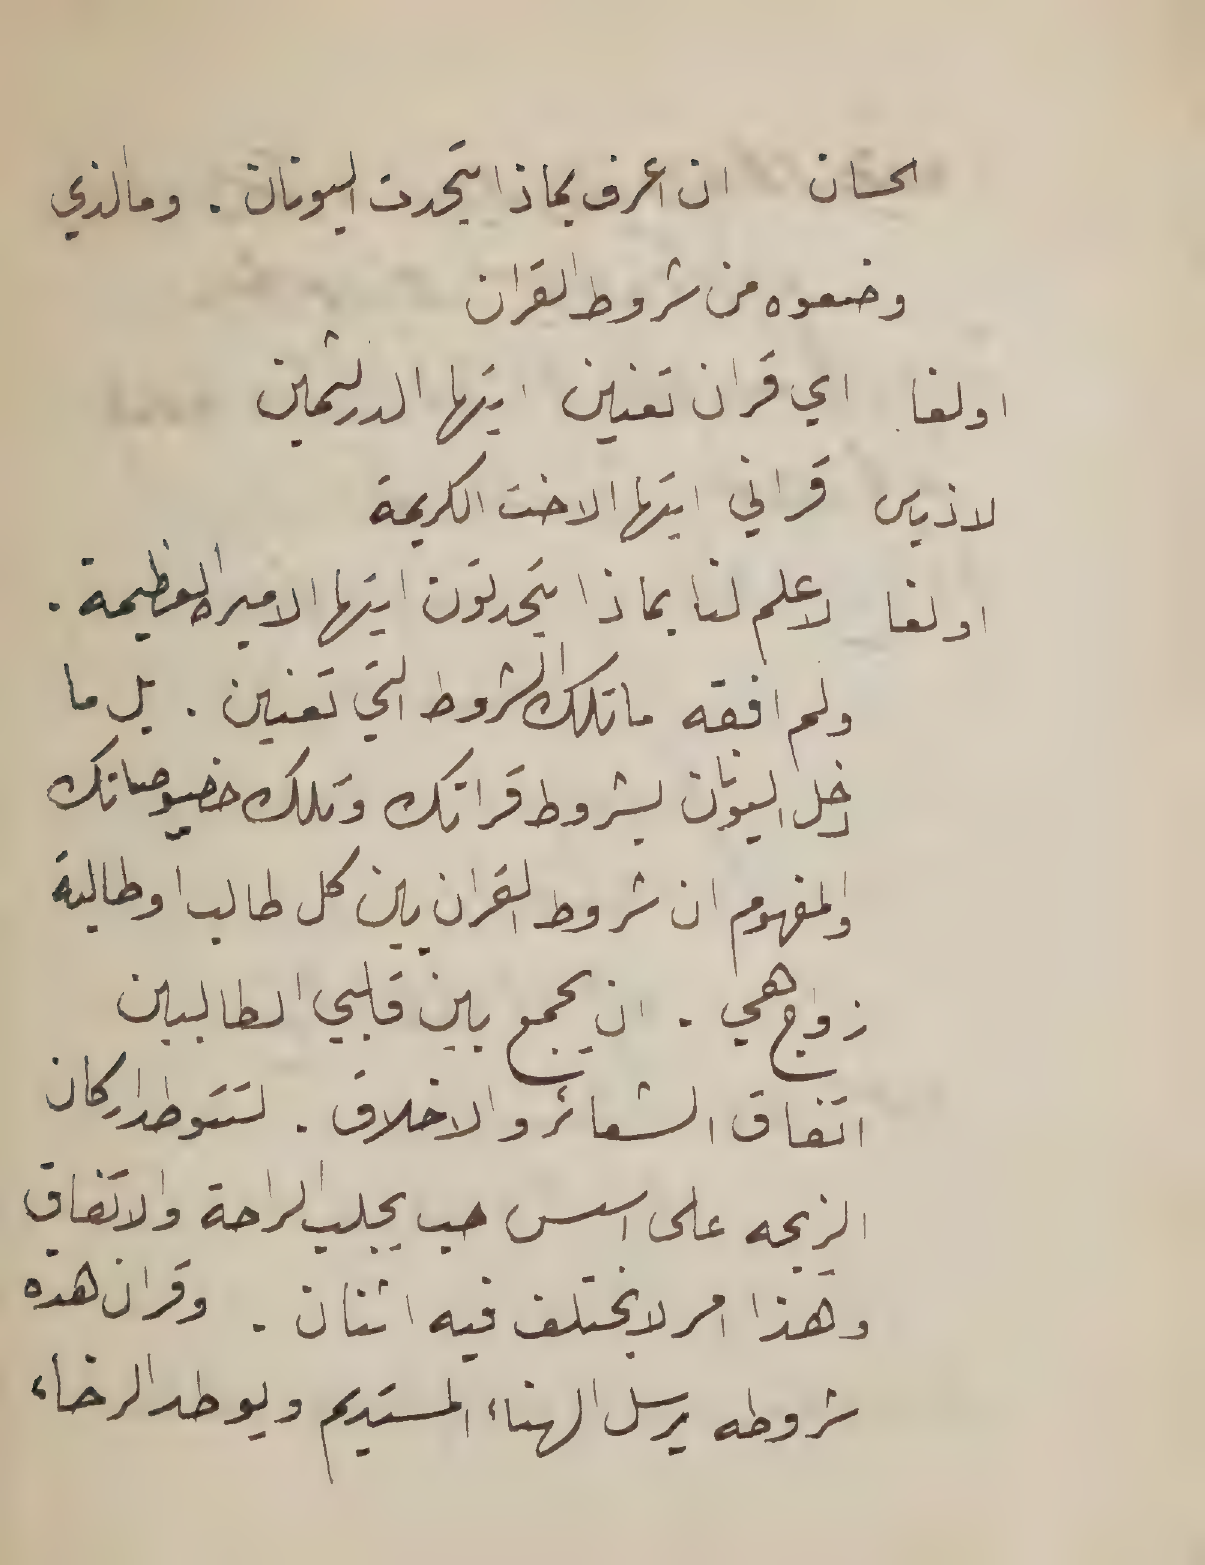 الحسان ان اعرف بماذا يتحدث اليونان . ومالذي
وضعوه من شروط القران
اولغا اي قران تعنين ايتها الدر الثمين
لاذياس قراني ايتها الاخت الكريمة
اولغا لاعلم لنا بماذا يتحدثون ايتها الاميرة العظيمة .
ولم افقه ماتلك الشروط التي تعنين . بل ما
دخل اليونان بشروط قرانك وتلك خصوصياتك
والمفهوم ان شروط القران بين كل طالب او طالبة
زواج هي . ان يجمع بين قلبي الطالبين
اتفاق الشعائر والاخلاق . لتتوطد اركان
الزيجه على اسس حب يجلب الراحة والاتفاق
وهذا امر لايختلف فيه اثنان . وقران هذه
شروطه يرسل الهناء المستديم ويوطد الرخاء